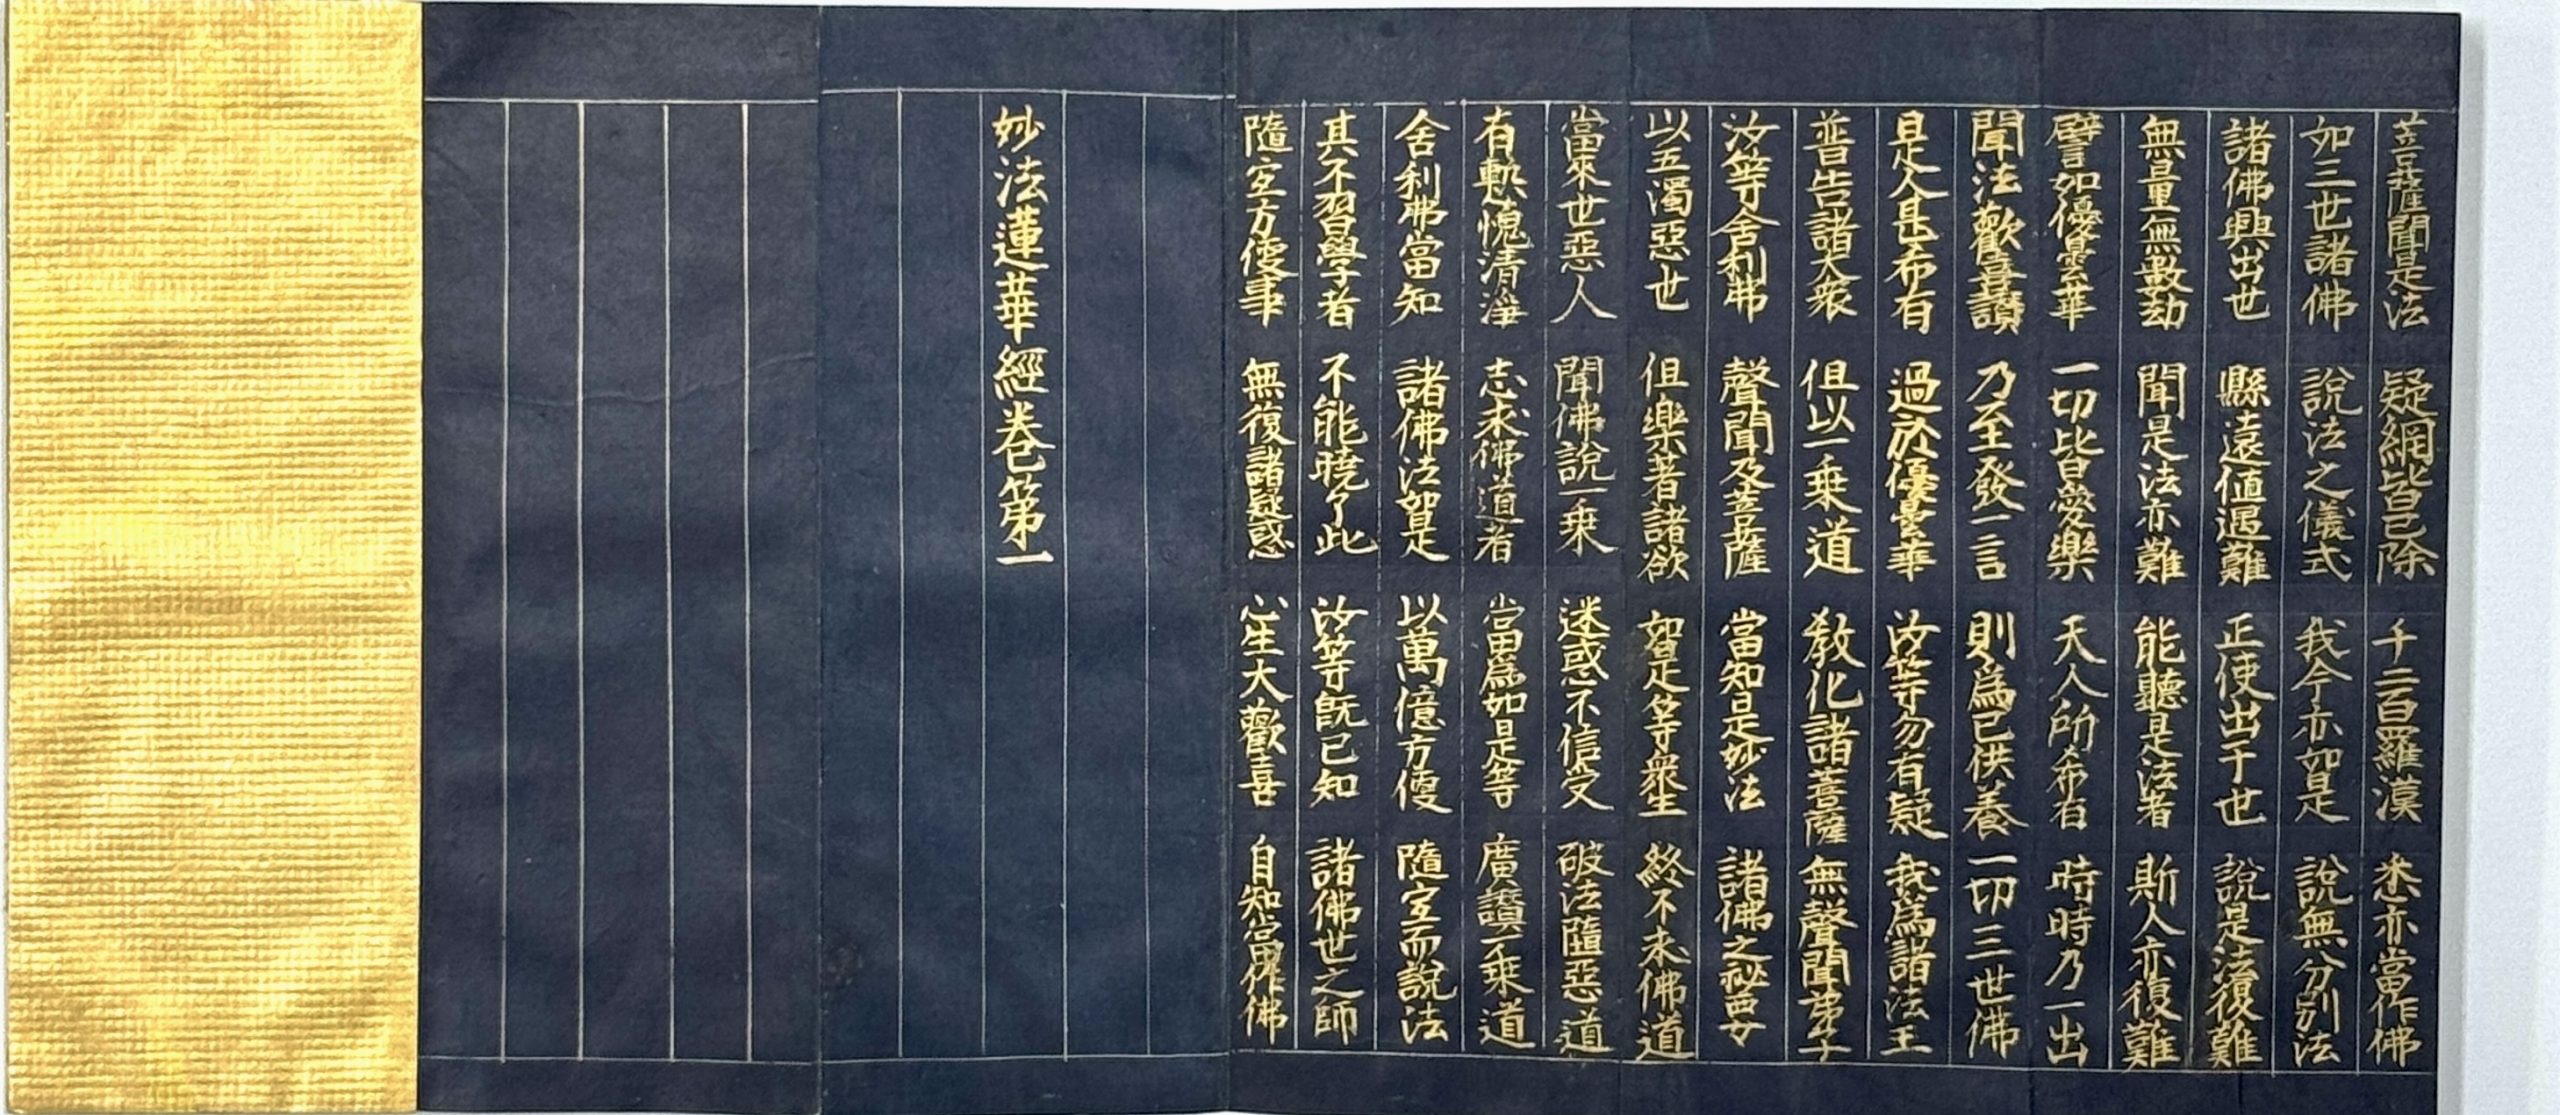 菩薩聞是法 疑網皆已除 千二百羅漢 悉亦當作佛
如三世諸佛 說法之儀式 我今亦如是 說無分別法
諸佛興出世 縣遠值遇難 正使出于世 說是法復難
無量無數劫 聞是法亦難 能聽是法者 斯人亦復難
譬如優曇華 一切皆愛樂 天人所希有 時時乃一出
聞法歡喜讚 乃至發一言 則為已供養 一切三世佛
是人甚希有 過於優曇華 汝等勿有疑 我為諸法王
普告諸大衆 但以一乗道 教化諸菩薩 無聲聞弟子
汝等舍利弗 聲聞及菩薩 當知是妙法 諸佛之祕要
以五濁惡世 但樂著諸欲 如是等衆生 終不求佛道
當來世惡人 聞佛說一乗 迷惑不信受 破法墮惡道
有慙愧清淨 志求佛道者 當為如是等 廣讚一乗道
舍利弗當知 諸佛法如是 以萬億方便 隨宜而說法
其不習學者 不能曉了此 汝等既已知 諸佛世之師
隨宜方便事 無復諸疑惑 心生大歡喜 自知當作佛
妙法蓮華經卷第一